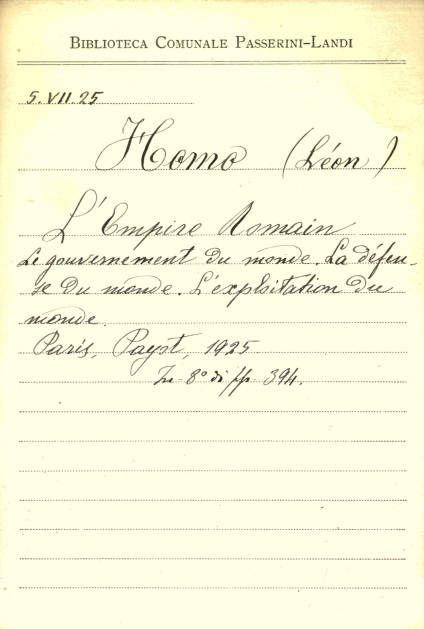 BIBLIOTECA COMUNALE PASSERINI-LANDI
5.VII.25
Homo (Léon)
L'Empire Romain
Le gouvernement du monde. La défen-
se du monde. L'exploitation du
monde.
Paris, Payot, 1925.
In 8° di pp. 394.